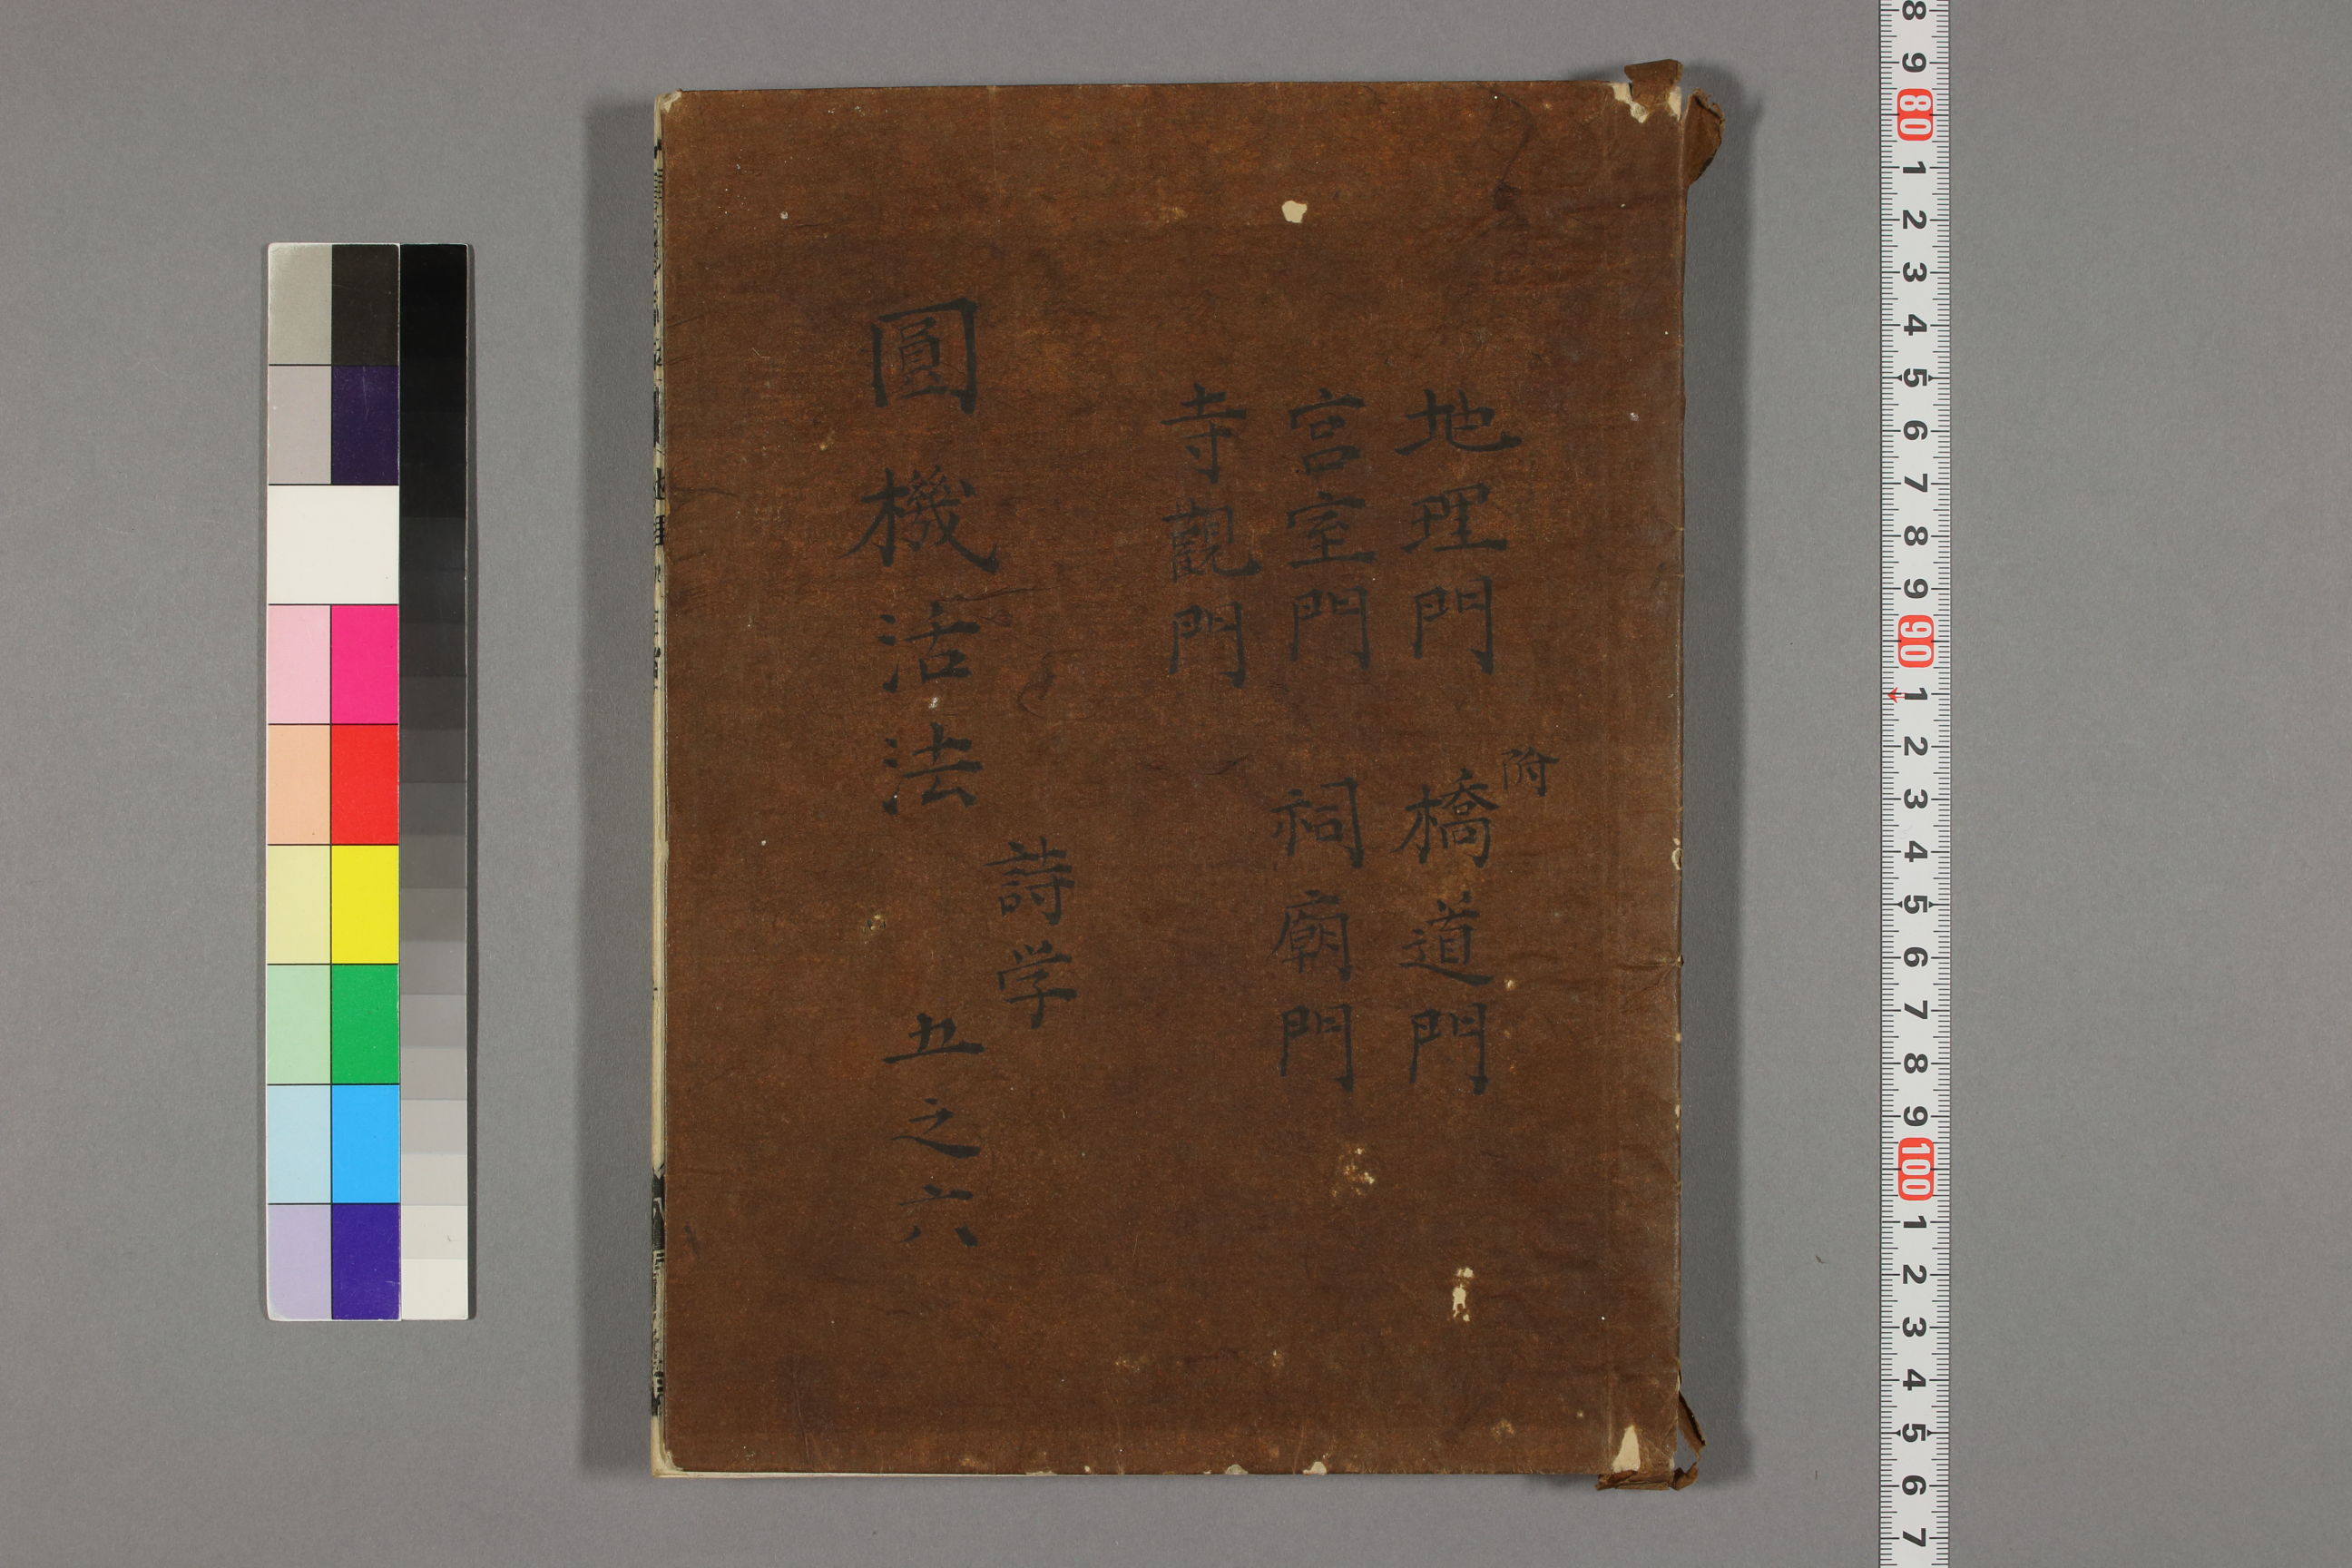 地理門 附 橋道門
宮室門 祠廟門
寺觀門
圓機活法 詩学 五之六
8 9 80 1 2 3 4 5 6 7 8 9 90 1 2 3 4 5 6 7 8 9 100 1 2 3 4 5 6 7